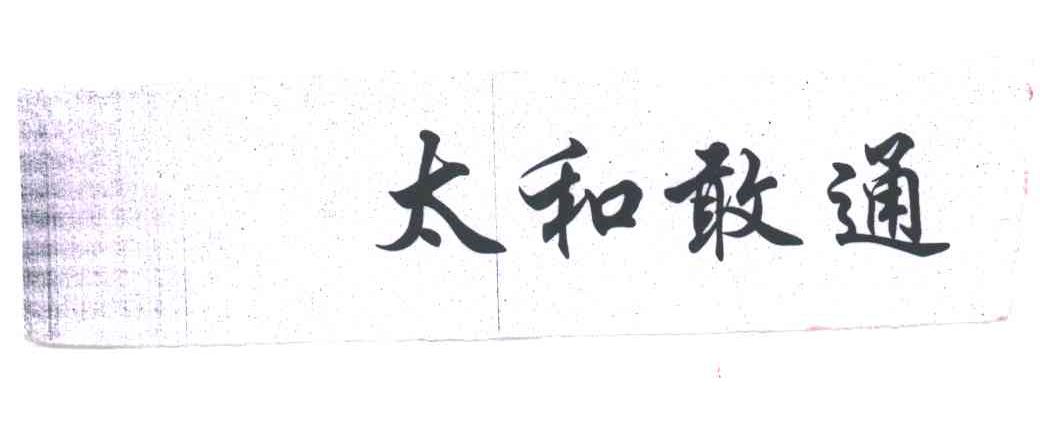 太和敢通